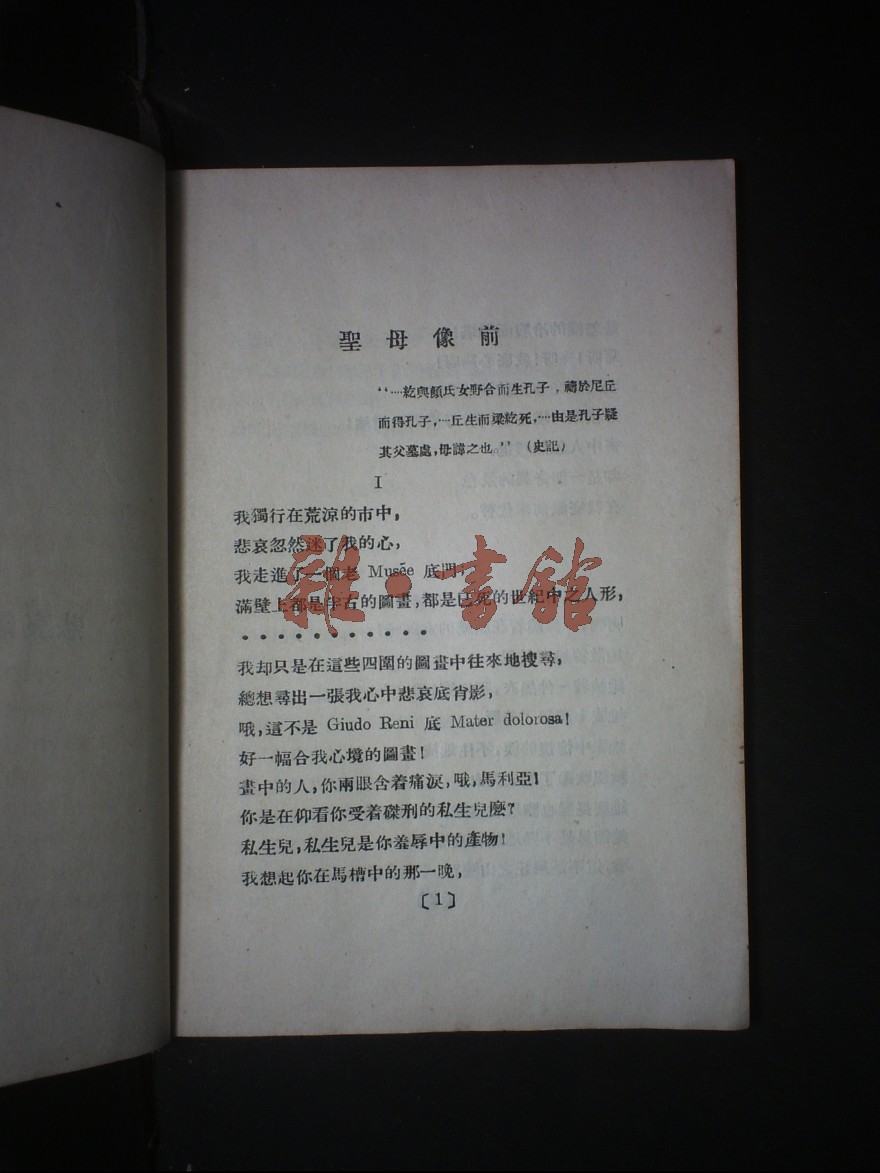 聖母像前
“····紇與顏氏女野合而生孔子，禱於尼丘
而得孔子，···丘生而梁紇死，···由是孔子疑
其父墓處，母諱之也。”（史記）
I
我獨行在荒涼的市中，
悲哀忽然迷了我的心，
我走進了一個老 Musée 底門，
滿壁上都是宇古的圖畫，都是已死的世紀中之人形，
• • • • • • • • • • •
我却只是在這些四圍的圖畫中往來地搜尋，
總想尋出一張我心中悲哀底肖影，
哦，這不是 Giudo Reni 底 Mater dolorosa！
好一幅合我心境的圖畫！
畫中的人，你兩眼含着痛淚，哦，馬利亞！
你是在仰看你受着磔刑的私生兒麽？
私生兒，私生兒是你羞辱中的產物！
我想起你在馬槽中的那一晚，
〔1〕
雜·書館